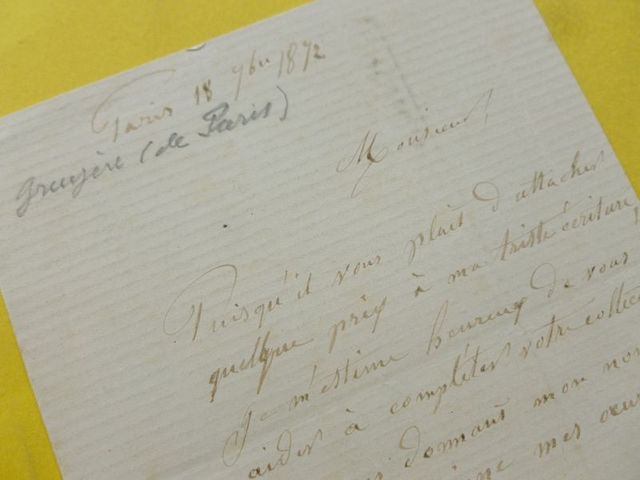 Paris 18 9bre 1872
Gruyère (de Paris)
Monsieur,
Puisqu'il vous plait d'attacher
quelque prix à ma triste écriture,
Je m'estime heureux de vous
aider à compléter votre collec
donnant mon nom
mes oeu